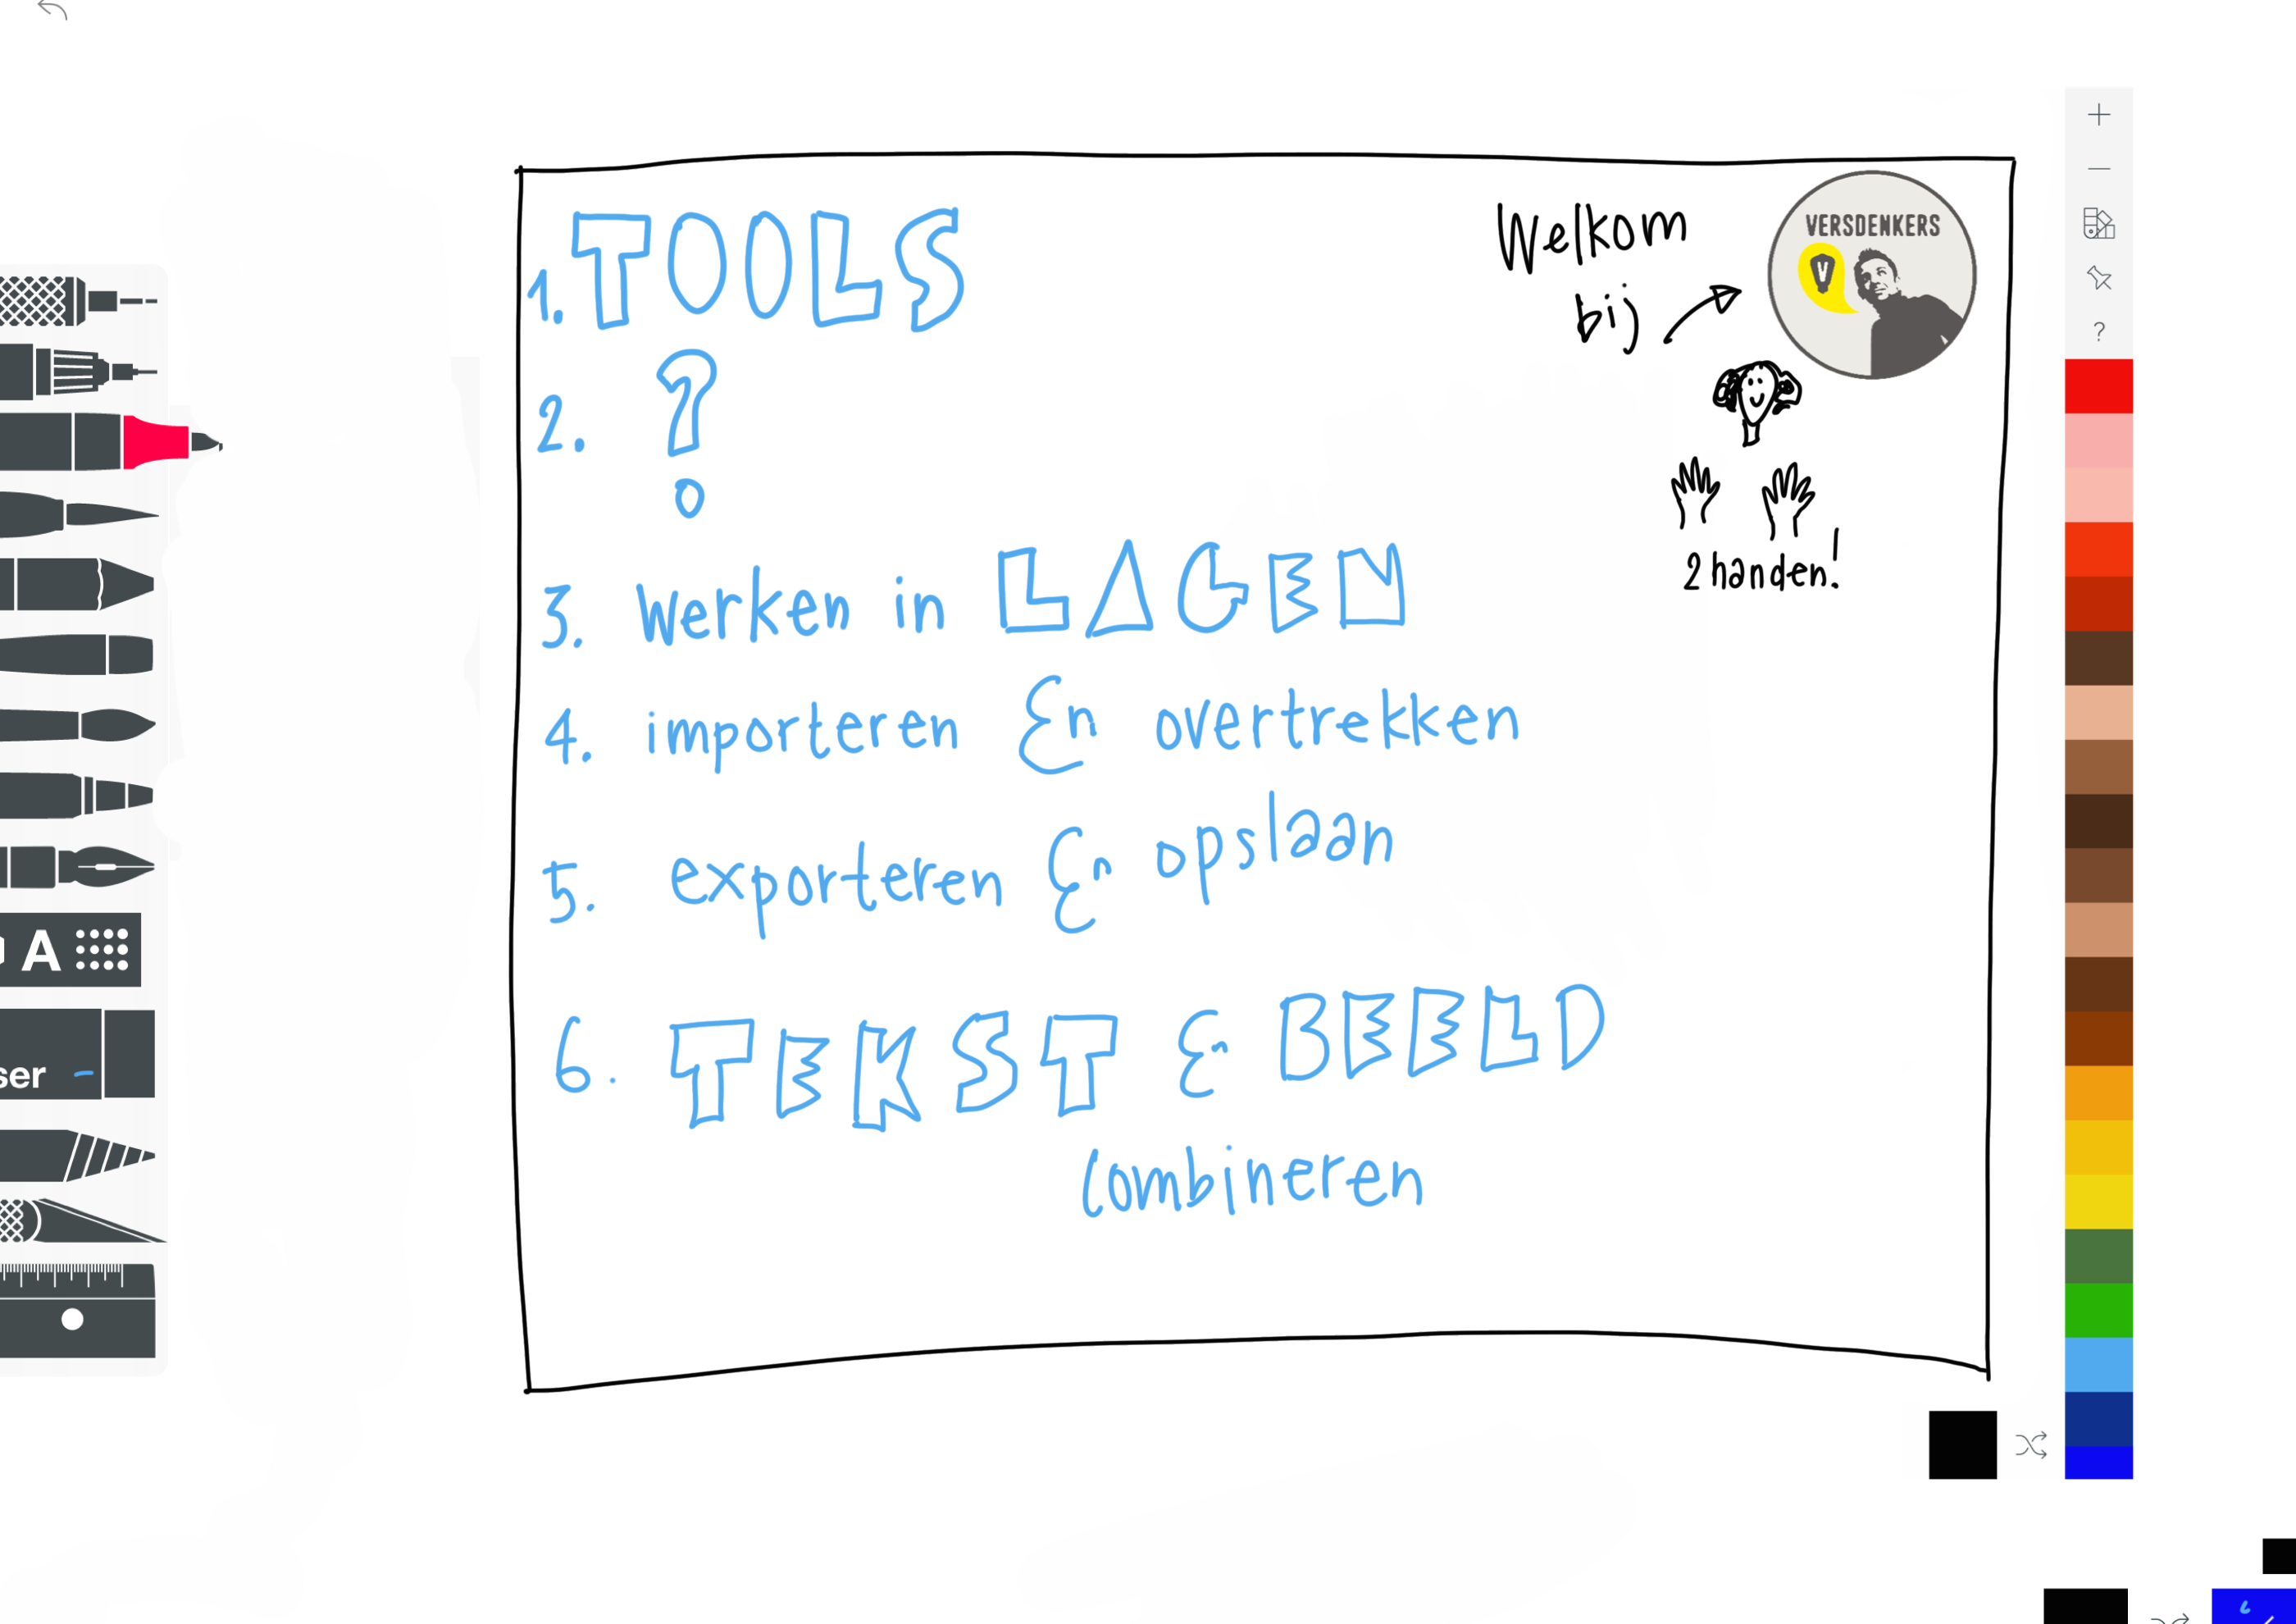 1. TOOLS
Welkom
bij
VERSDENKERS
V
2. ?
2 handen!
3. werken in LAGEN
4. importeren En overtrekken
5. exporteren En opslaan
6. TEKST En BEELD
combineren
A
ser
?